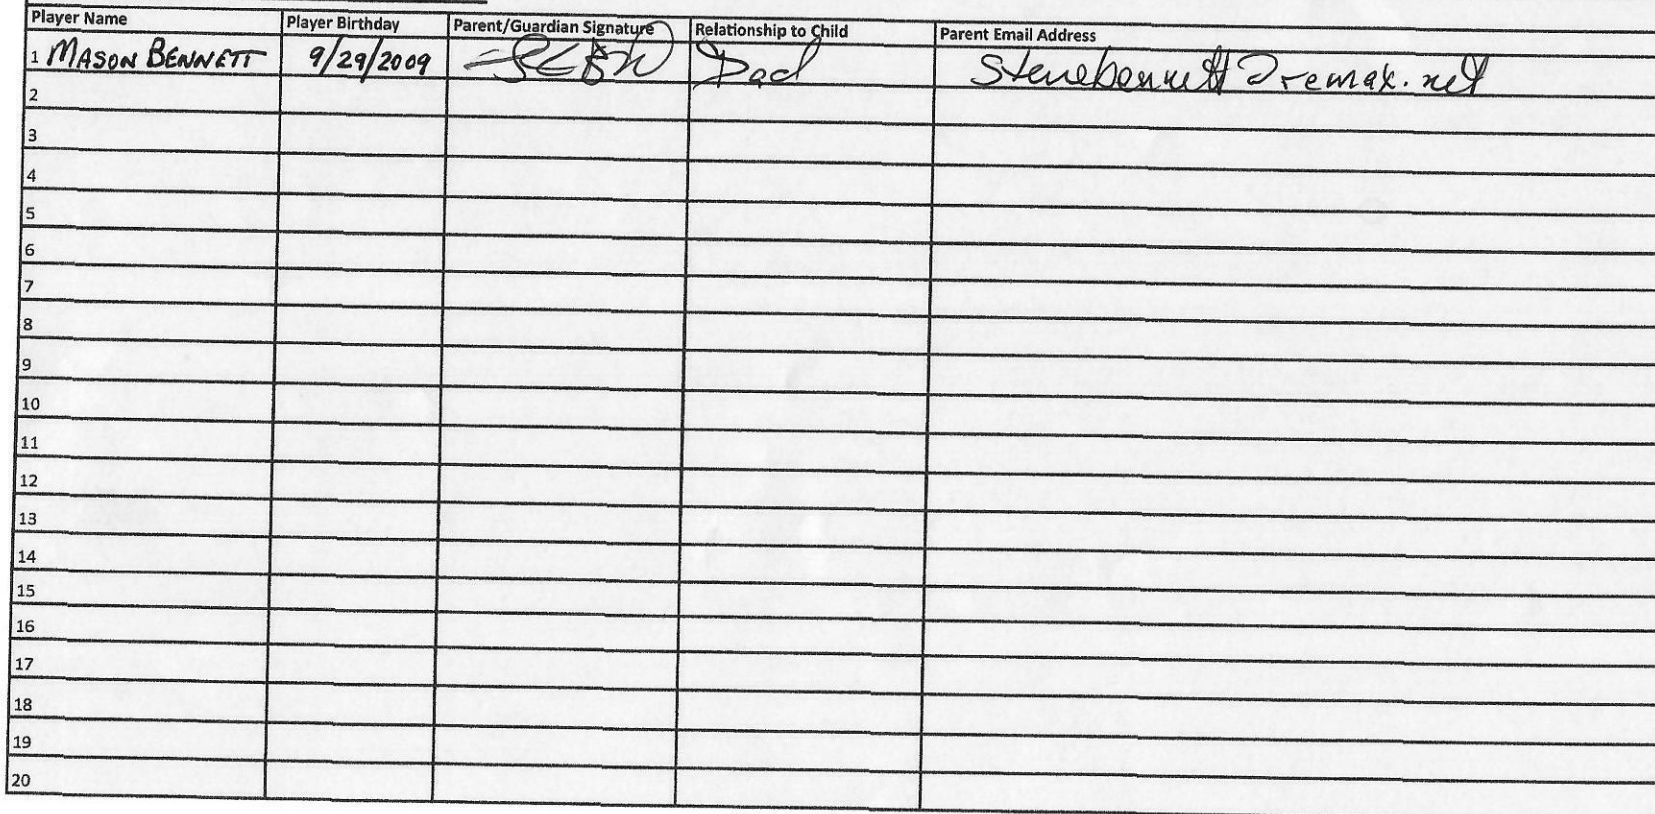 Player Name Player Birthday Parent/Guardian Signature Relationship to Child Parent Email Address
1 MASON BENNETT 9/29/2009 Dad stevebennett@remax.net
2
3
4
5
6
7
8
9
10
11
12
13
14
15
16
17
18
19
20